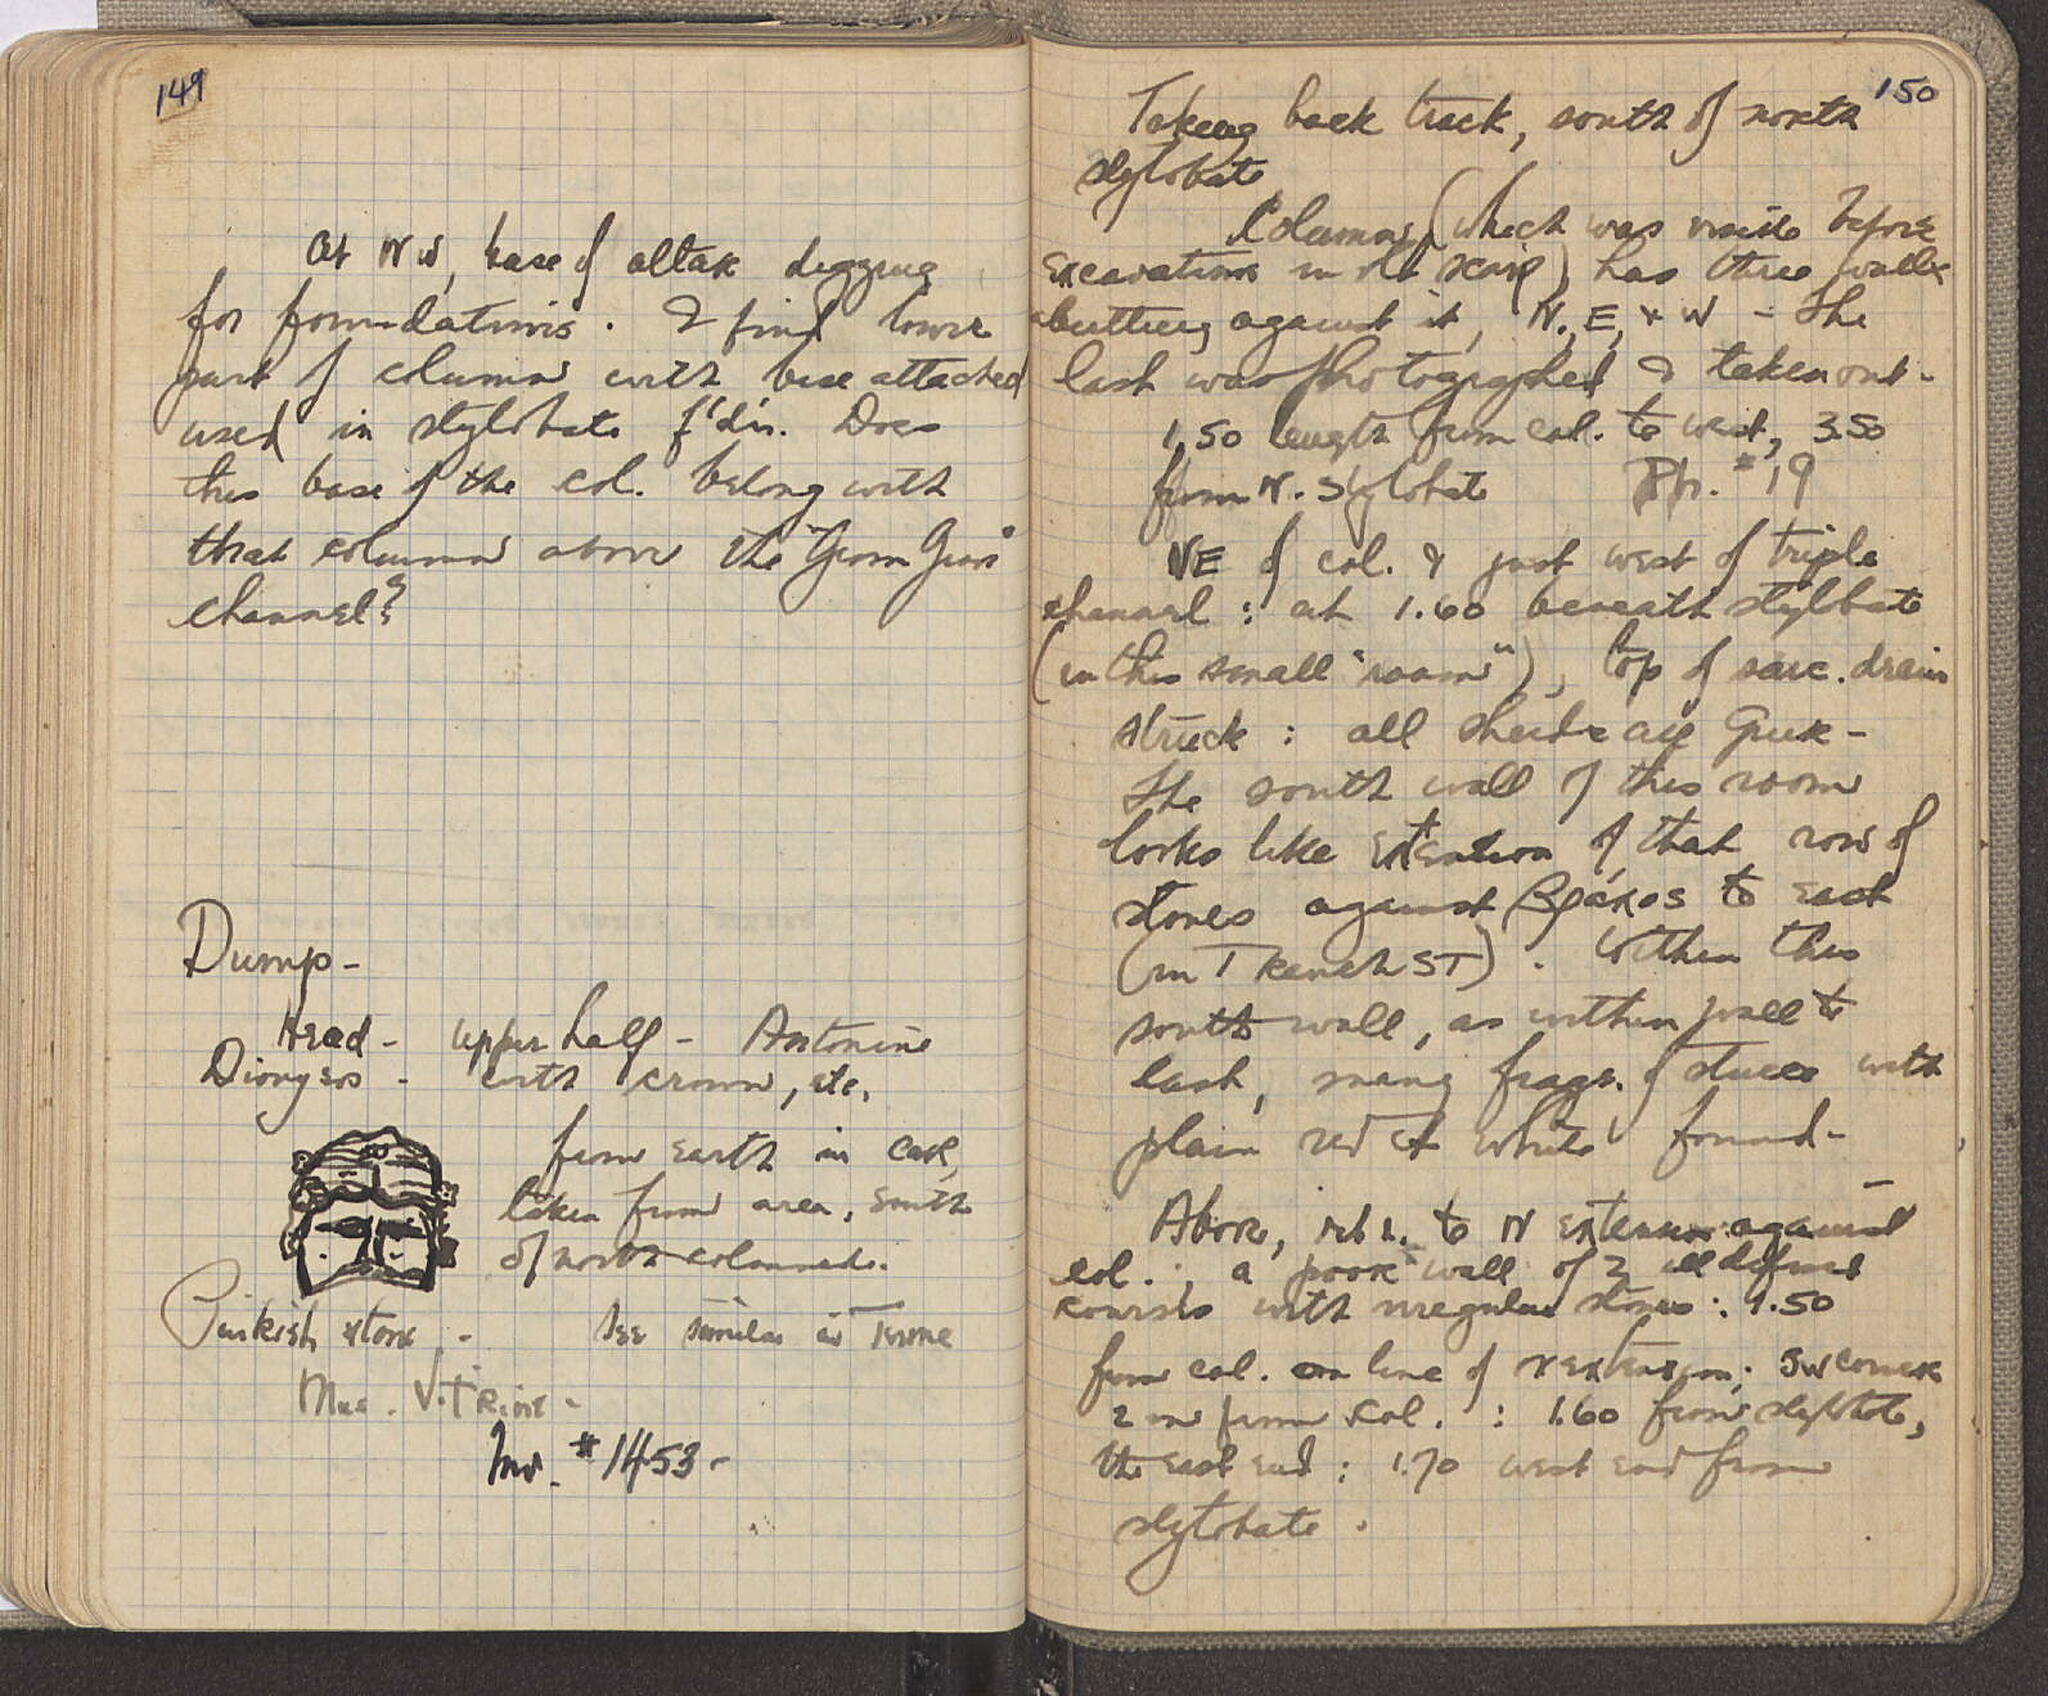 149
At NW, base of altar digging
for foundations. I find lower
part of column with base attached
used in stylobate f'd'n. Does
this base of the col. belong with
that column above the "Grom Gron"
channel?
Dump -
Head - upper half - Antonine
Dionysos - with crown, etc.
from earth in car,
taken from area, south
of north colonnade.
Turkish store - see similar in Rome
Mus. Vitrine -
Inv. #1453 -
150
Taking back track, south of north
stylobate
Column (which was visible before
excavations in old scarp) has three walls
abutting against it, N, E, + W - The
last was photographed & taken out -
1.50 length from col. to west, 3.50
from N. Stylobate Ph. #19
NE of col. & just west of triple
channel : at 1.60 beneath stylobate
(in this small "room"), top of sarc. drain
struck : all sherds are Greek -
The south wall of this room
looks like extension of that row of
stones against βράχος to east
(in Trench ST). Within this
south wall, as within wall to
east, many frags. of stucco with
plain red & white found -
Above, to N extension against
col. ; a "poor" wall of 2 ill defined
courses with irregular stones : 1.50
from col. on line of N extension; SW corner
2 m from col. : 1.60 from stylobate,
the east end ; 1.70 west end from
stylobate.